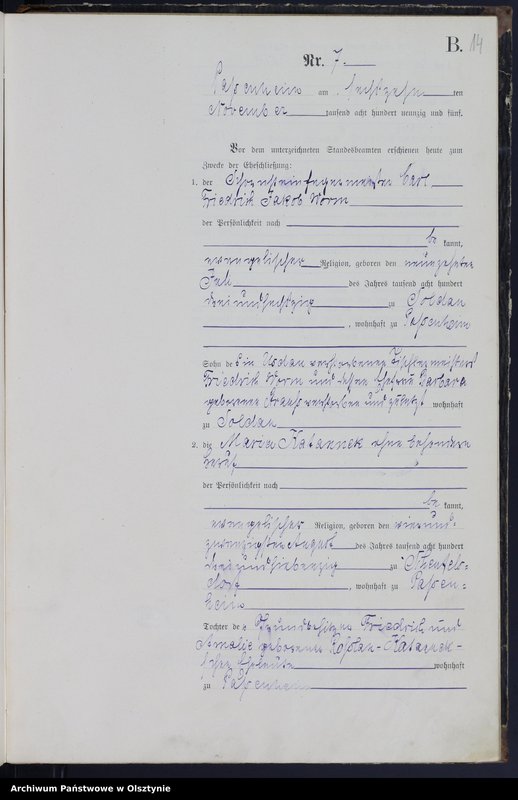 B. 14
Nr. 7
Passenheim am sechszehn ten
November tausend acht hundert neunzig und fünf.
Vor dem unterzeichneten Standesbeamten erschienen heute zum
Zwecke der Eheschließung:
1. der Schornsteinfegermeister Carl
Friedrich Jakob Worm
der Persönlichkeit nach
be kannt,
evangelischer Religion, geboren den neunzehnten
Juli des Jahres tausend acht hundert
dreiundsechszig zu Soldau
, wohnhaft zu Passenheim
Sohn des in Usdau verstorbenen Tischlermeisters
Friedrich Worm und dessen Ehefrau Barbara
geborenen verstorben und zuletzt wohnhaft
zu Soldau
2. die Maria Katannek ohne besonderen
Beruf
der Persönlichkeit nach
be kannt,
evangelischer Religion, geboren den vierund-
zwanzigsten August des Jahres tausend acht hundert
dreiundsiebenzig zu
dorf , wohnhaft zu Passen-
heim
Tochter der Grundbesitzer Friedrich und
Amalie geborenen Koslan-Katannek-
schen Eheleute wohnhaft
zu Passenheim
Archiwum Państwowe w Olsztynie